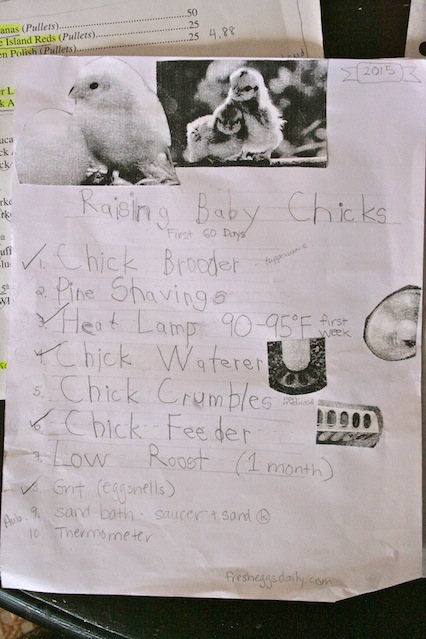 anas (Pullets)..................................50
e Island Reds (Pullets)..................25 4.88
en Polish (Pullets)..........................25
2015
Raising Baby Chicks
First 60 Days
✓ 1. Chick Brooder tupperware
2. Pine Shavings
✓ 3. Heat Lamp 90-95°F first week
✓ 4. Chick Waterer
5. Chick Crumbles medicated
✓ 6. Chick Feeder
7. Low Roost (1 month)
✓ 8. Grit (eggshells)
9. sand bath - saucer + sand Ⓚ
10 Thermometer
fresheggsdaily.com